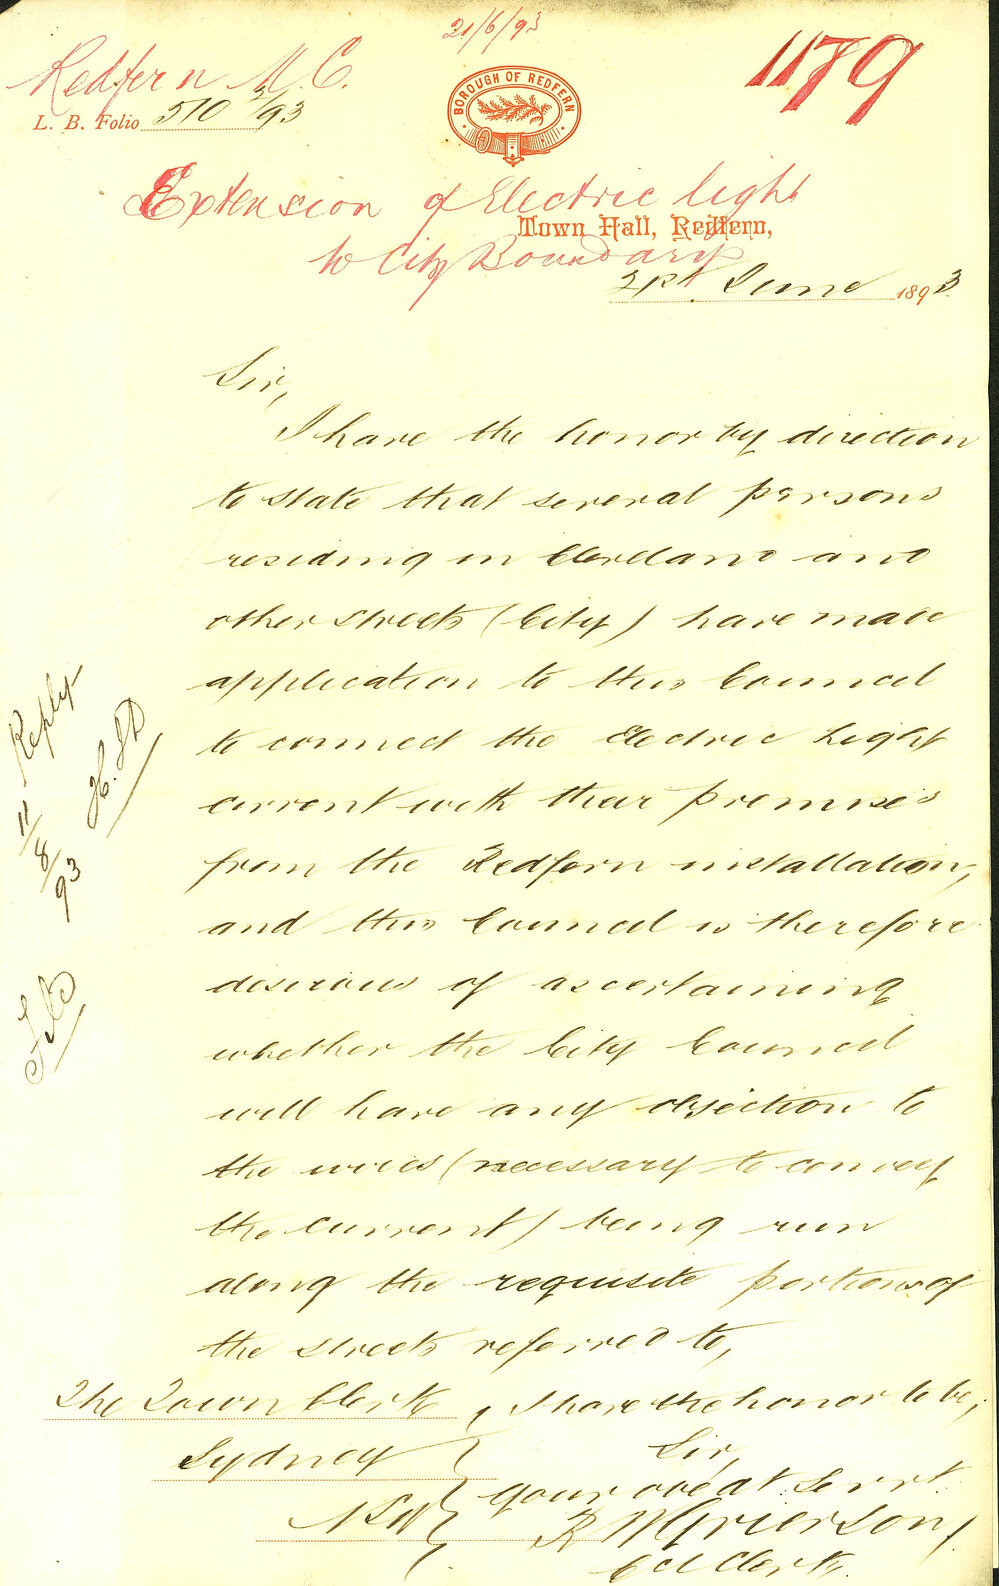 21/6/93
Redfern M. C.
1179
L. B. Folio 510 3/93
BOROUGH OF REDFERN
Extension of Electric light
Town Hall, Redfern,
to City Boundary
21st June 1893
Sir,
I have the honor by direction
to state that several persons
residing in Cleveland and
other streets (City) have made
application to this Council
to connect the Electric Light
current with their premises
from the Redfern installation,
and this Council is therefore
desirous of ascertaining
whether the City Council
will have any objection to
the wires (necessary to convey
the current) being run
along the requisite portions of
the streets referred to,
I have the honor to be,
Sir,
your obedt. Servt.
Grierson
Ccl Clerk.
The Town Clerk
Sydney
NSW
Reply
11/8/93
File